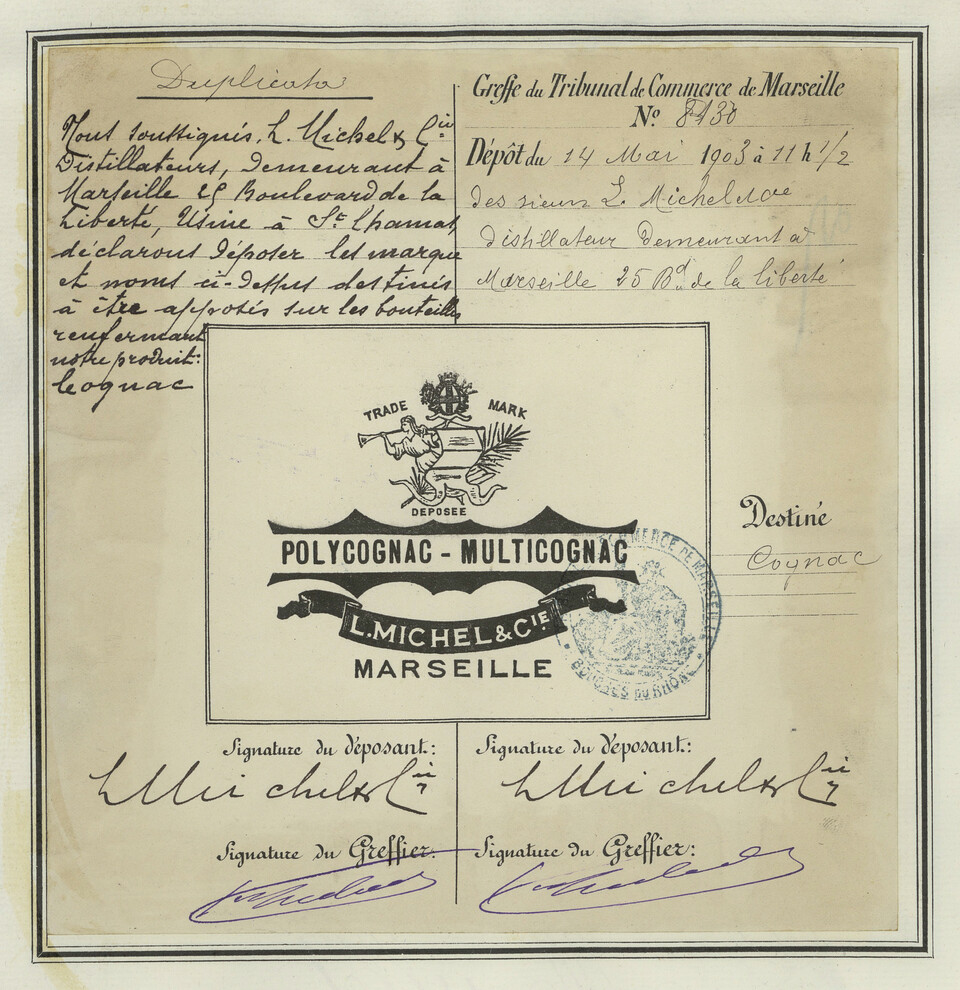 Duplicata
Nous soussignés, L. Michel & Cie
Distillateurs, demeurant à
Marseille 25 Boulevard de la
Liberté, Usine à St Chamas,
déclarons déposer les marque
et noms ci-dessus destinés
à être apposés sur les bouteilles
renfermant
notre produit:
Cognac
Greffe du Tribunal de Commerce de Marseille
No 8130
Dépôt du 14 Mai 1903 à 11 h 1/2
des sieurs L. Michel & Cie
distillateur demeurant à
Marseille 25 Bd de la liberté
TRADE MARK
DEPOSEE
POLYCOGNAC - MULTICOGNAC
L. MICHEL & CIE
MARSEILLE
Destiné
Cognac
COMMERCE DE MARSEILLE
BOUCHES DU RHÔNE
Signature du déposant: Signature du déposant:
L Michel & Cie L Michel & Cie
Signature du Greffier: Signature du Greffier: